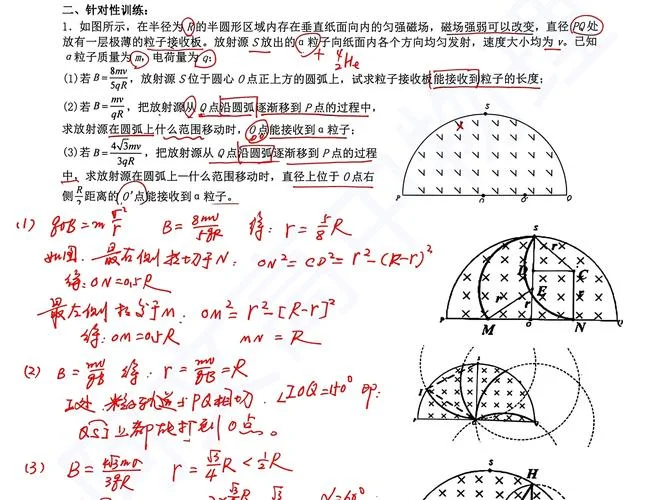 二、针对性训练:
1. 如图所示,在半径为 R 的半圆形区域内存在垂直纸面向内的匀强磁场,磁场强弱可以改变,直径 PQ 处
放有一层极薄的粒子接收板。放射源 S 放出的 α 粒子向纸面内各个方向均匀发射,速度大小均为 v。已知
α 粒子质量为 m,电荷量为 q。
⁴₂He
(1) 若 B=8mv/5qR,放射源 S 位于圆心 O 点正上方的圆弧上,试求粒子接收板能接收到粒子的长度;
(2) 若 B=mv/qR,把放射源从 Q 点沿圆弧逐渐移到 P 点的过程中,
求放射源在圆弧上什么范围移动时,O 点能接收到 α 粒子;
(3) 若 B=4√3mv/3qR,把放射源从 Q 点沿圆弧逐渐移到 P 点的过程
中,求放射源在圆弧上一什么范围移动时,直径上位于 O 点右
侧 R/2 距离的 O'点能接收到 α 粒子。
S
P O O' Q
(1) qvB=m v²/r B=8mv/5qR 得: r=5/8 R
如图. 最右侧 相切于N: ON²=CD²=r²-(R-r)²
得: ON=0.5R
最左侧 于M: OM²=r²-[R-r]²
得: OM=0.5R MN=R
S
D C
E
r r r
P M O N Q
(2) B=mv/qB 得: r=mv/qB=R
I处 粒子轨迹与PQ相切. ∠IOQ=150° 即:
QSI上都能打到O点。
I
(3) B=4√3mv/3qR r=√3/4 R<1/2 R
H
S